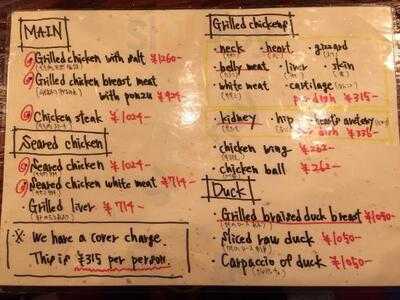 MAIN
Grilled chicken with salt ¥1260-
Grilled chicken breast meat
with ponzu ¥924-
Chicken steak ¥1024-
Seared chicken
Seared chicken ¥1024-
Seared chicken white meat ¥714-
Grilled liver ¥714-
※ We have a cover charge.
This is ¥315 per person.
Grilled chicken
・neck ・heart ・gizzard
・belly meat ・liver ・skin
・white meat ・cartilage
per dish ¥315-
・kidney ・hip ・heart's aretery
per dish ¥336-
chicken wing ¥262-
chicken ball ¥262-
Duck
Grilled braised duck breast ¥1050-
Sliced raw duck ¥1050-
Carpaccio of duck ¥1050-